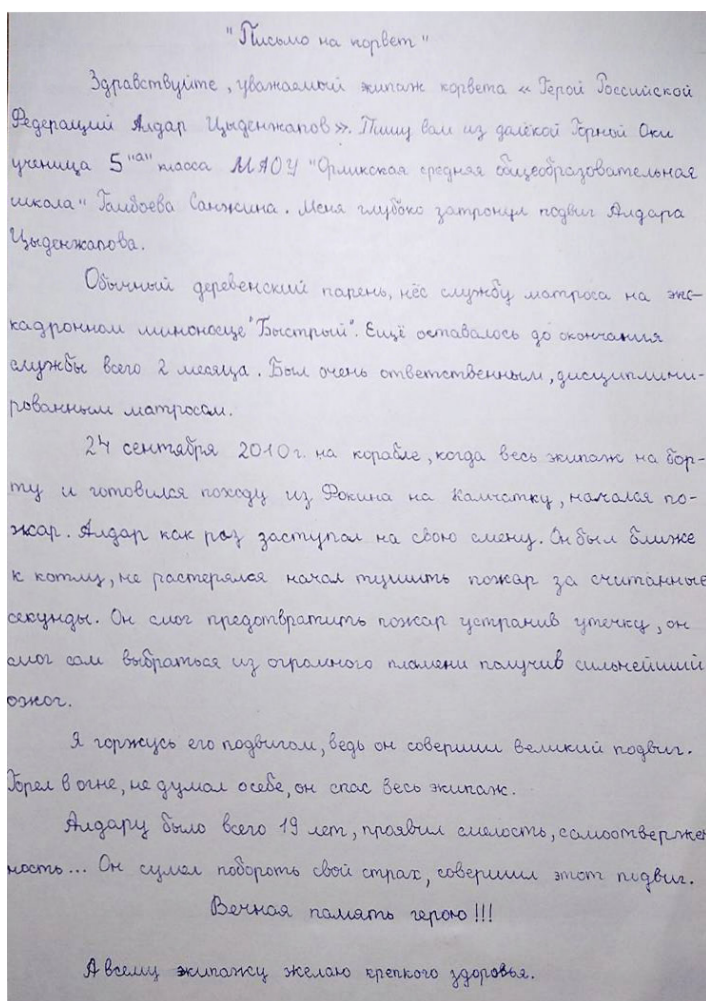 "Письмо на корвет"
Здравствуйте, уважаемый экипаж корвета « Герой Российской
Федерации Алдар Цыденжапов». Пишу вам из далёкой Горной Оки
ученица 5 "а" класса МАОУ "Орликская средняя общеобразовательная
школа" Гамбоева Санжина. Меня глубоко затронул подвиг Алдара
Цыденжапова.
Обычный деревенский парень, нёс службу матроса на эс-
кадронном миноносце "Быстрый". Ещё оставалось до окончания
службы всего 2 месяца. Был очень ответственным, дисциплини-
рованным матросом.
24 сентября 2010г. на корабле, когда весь экипаж на бор-
ту и готовился походу из Фокина на Камчатку, начался по-
жар. Алдар как раз заступал на свою смену. Он был ближе
к котлу, не растерялся начал тушить пожар за считанные
секунды. Он смог предотвратить пожар устранив утечку, он
смог сам выбраться из огромного пламени получив сильнейший
ожог.
Я горжусь его подвигом, ведь он совершил великий подвиг.
Горел в огне, не думал о себе, он спас весь экипаж.
Алдару было всего 19 лет, проявил смелость, самоотвержен
ность... Он сумел побороть свой страх, совершил этот подвиг.
Вечная память герою!!!
А всему экипажу желаю крепкого здоровья.